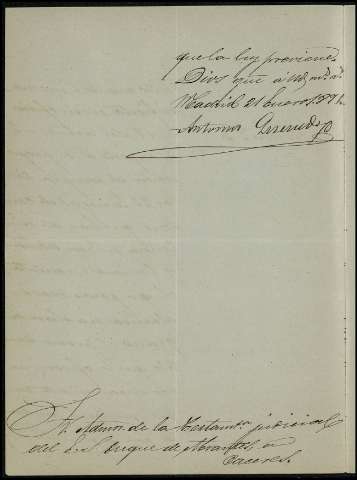 que la ley previene.
Dios gue a Vd. ms. as.
Madrid 21 Enero 1891.
Antonio
Sr. Admor. de la Testamta. judicial
del E. S. Duque de Abrantes, en
Cáceres.